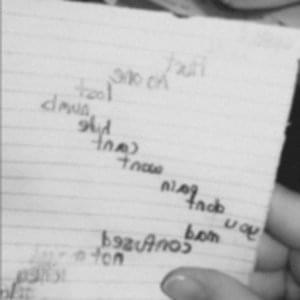 Hurt
no one
lost
numb
hide
cant
wont
pain
dont
you
mad
confused
not